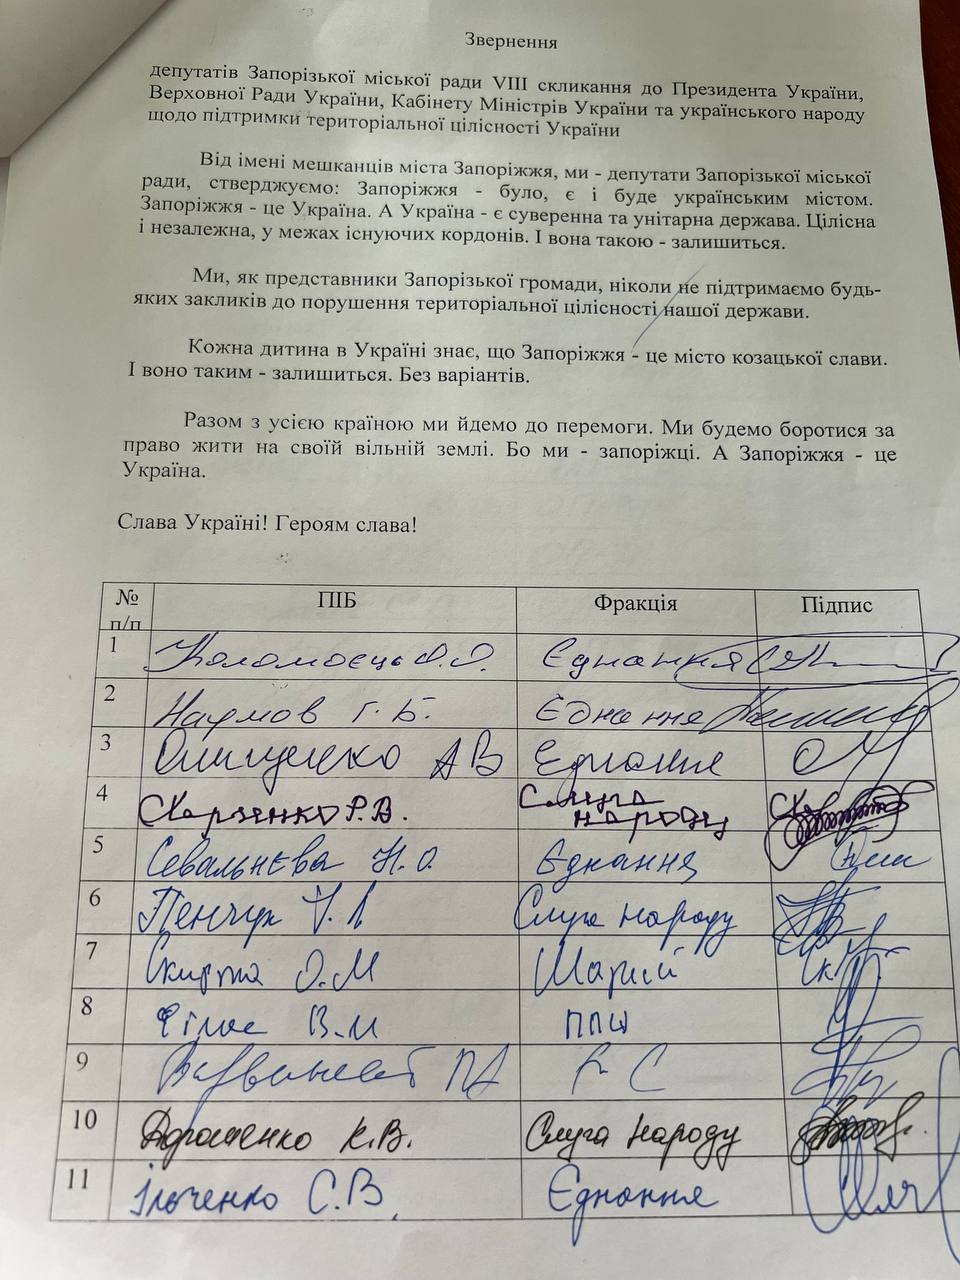 Звернення
депутатів Запорізької міської ради VIII скликання до Президента України,
Верховної Ради України, Кабінету Міністрів України та українського народу
щодо підтримки територіальної цілісності України
Від імені мешканців міста Запоріжжя, ми - депутати Запорізької міської
ради, стверджуємо: Запоріжжя - було, є і буде українським містом.
Запоріжжя - це Україна. А Україна - є суверенна та унітарна держава. Цілісна
і незалежна, у межах існуючих кордонів. І вона такою - залишиться.
Ми, як представники Запорізької громади, ніколи не підтримаємо будь-
яких закликів до порушення територіальної цілісності нашої держави.
Кожна дитина в Україні знає, що Запоріжжя - це місто козацької слави.
І воно таким - залишиться. Без варіантів.
Разом з усією країною ми йдемо до перемоги. Ми будемо боротися за
право жити на своїй вільній землі. Бо ми - запоріжці. А Запоріжжя - це
Україна.
Слава Україні! Героям слава!
№ п/п ПІБ Фракція Підпис
1 Коломоєць О.О. Єднання
2 Наумов Г.Б. Єднання
3 Онищенко А В Єднання
4 Р.В. Слуга народу
5 Севальнєва Н.О. Єднання
6 Пенчук Слуга народу
7 Скирта О.М Шарій
8 В.М ППШ
9
10 Дорошенко К.В. Слуга народу
11 Ільченко С.В. Єднання